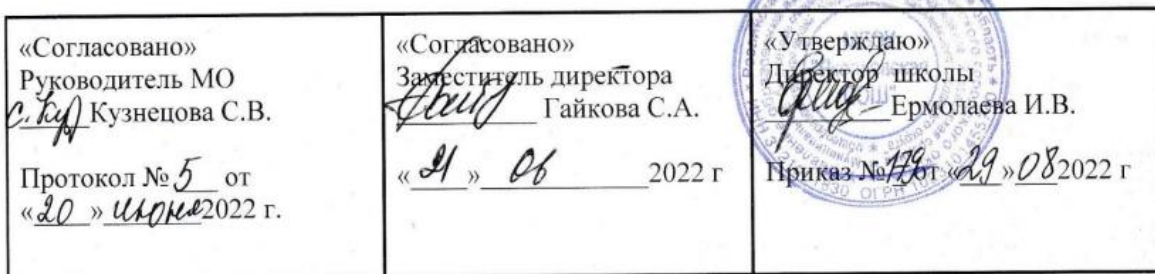 «Согласовано»
Руководитель МО
Кузнецова С.В.
Протокол № 5 от
«20» июня 2022 г.
«Согласовано»
Заместитель директора
Гайкова С.А.
«21» 06 2022 г
«Утверждаю»
Директор школы
Ермолаева И.В.
Приказ №179 от «29» 08 2022 г
ОГРН